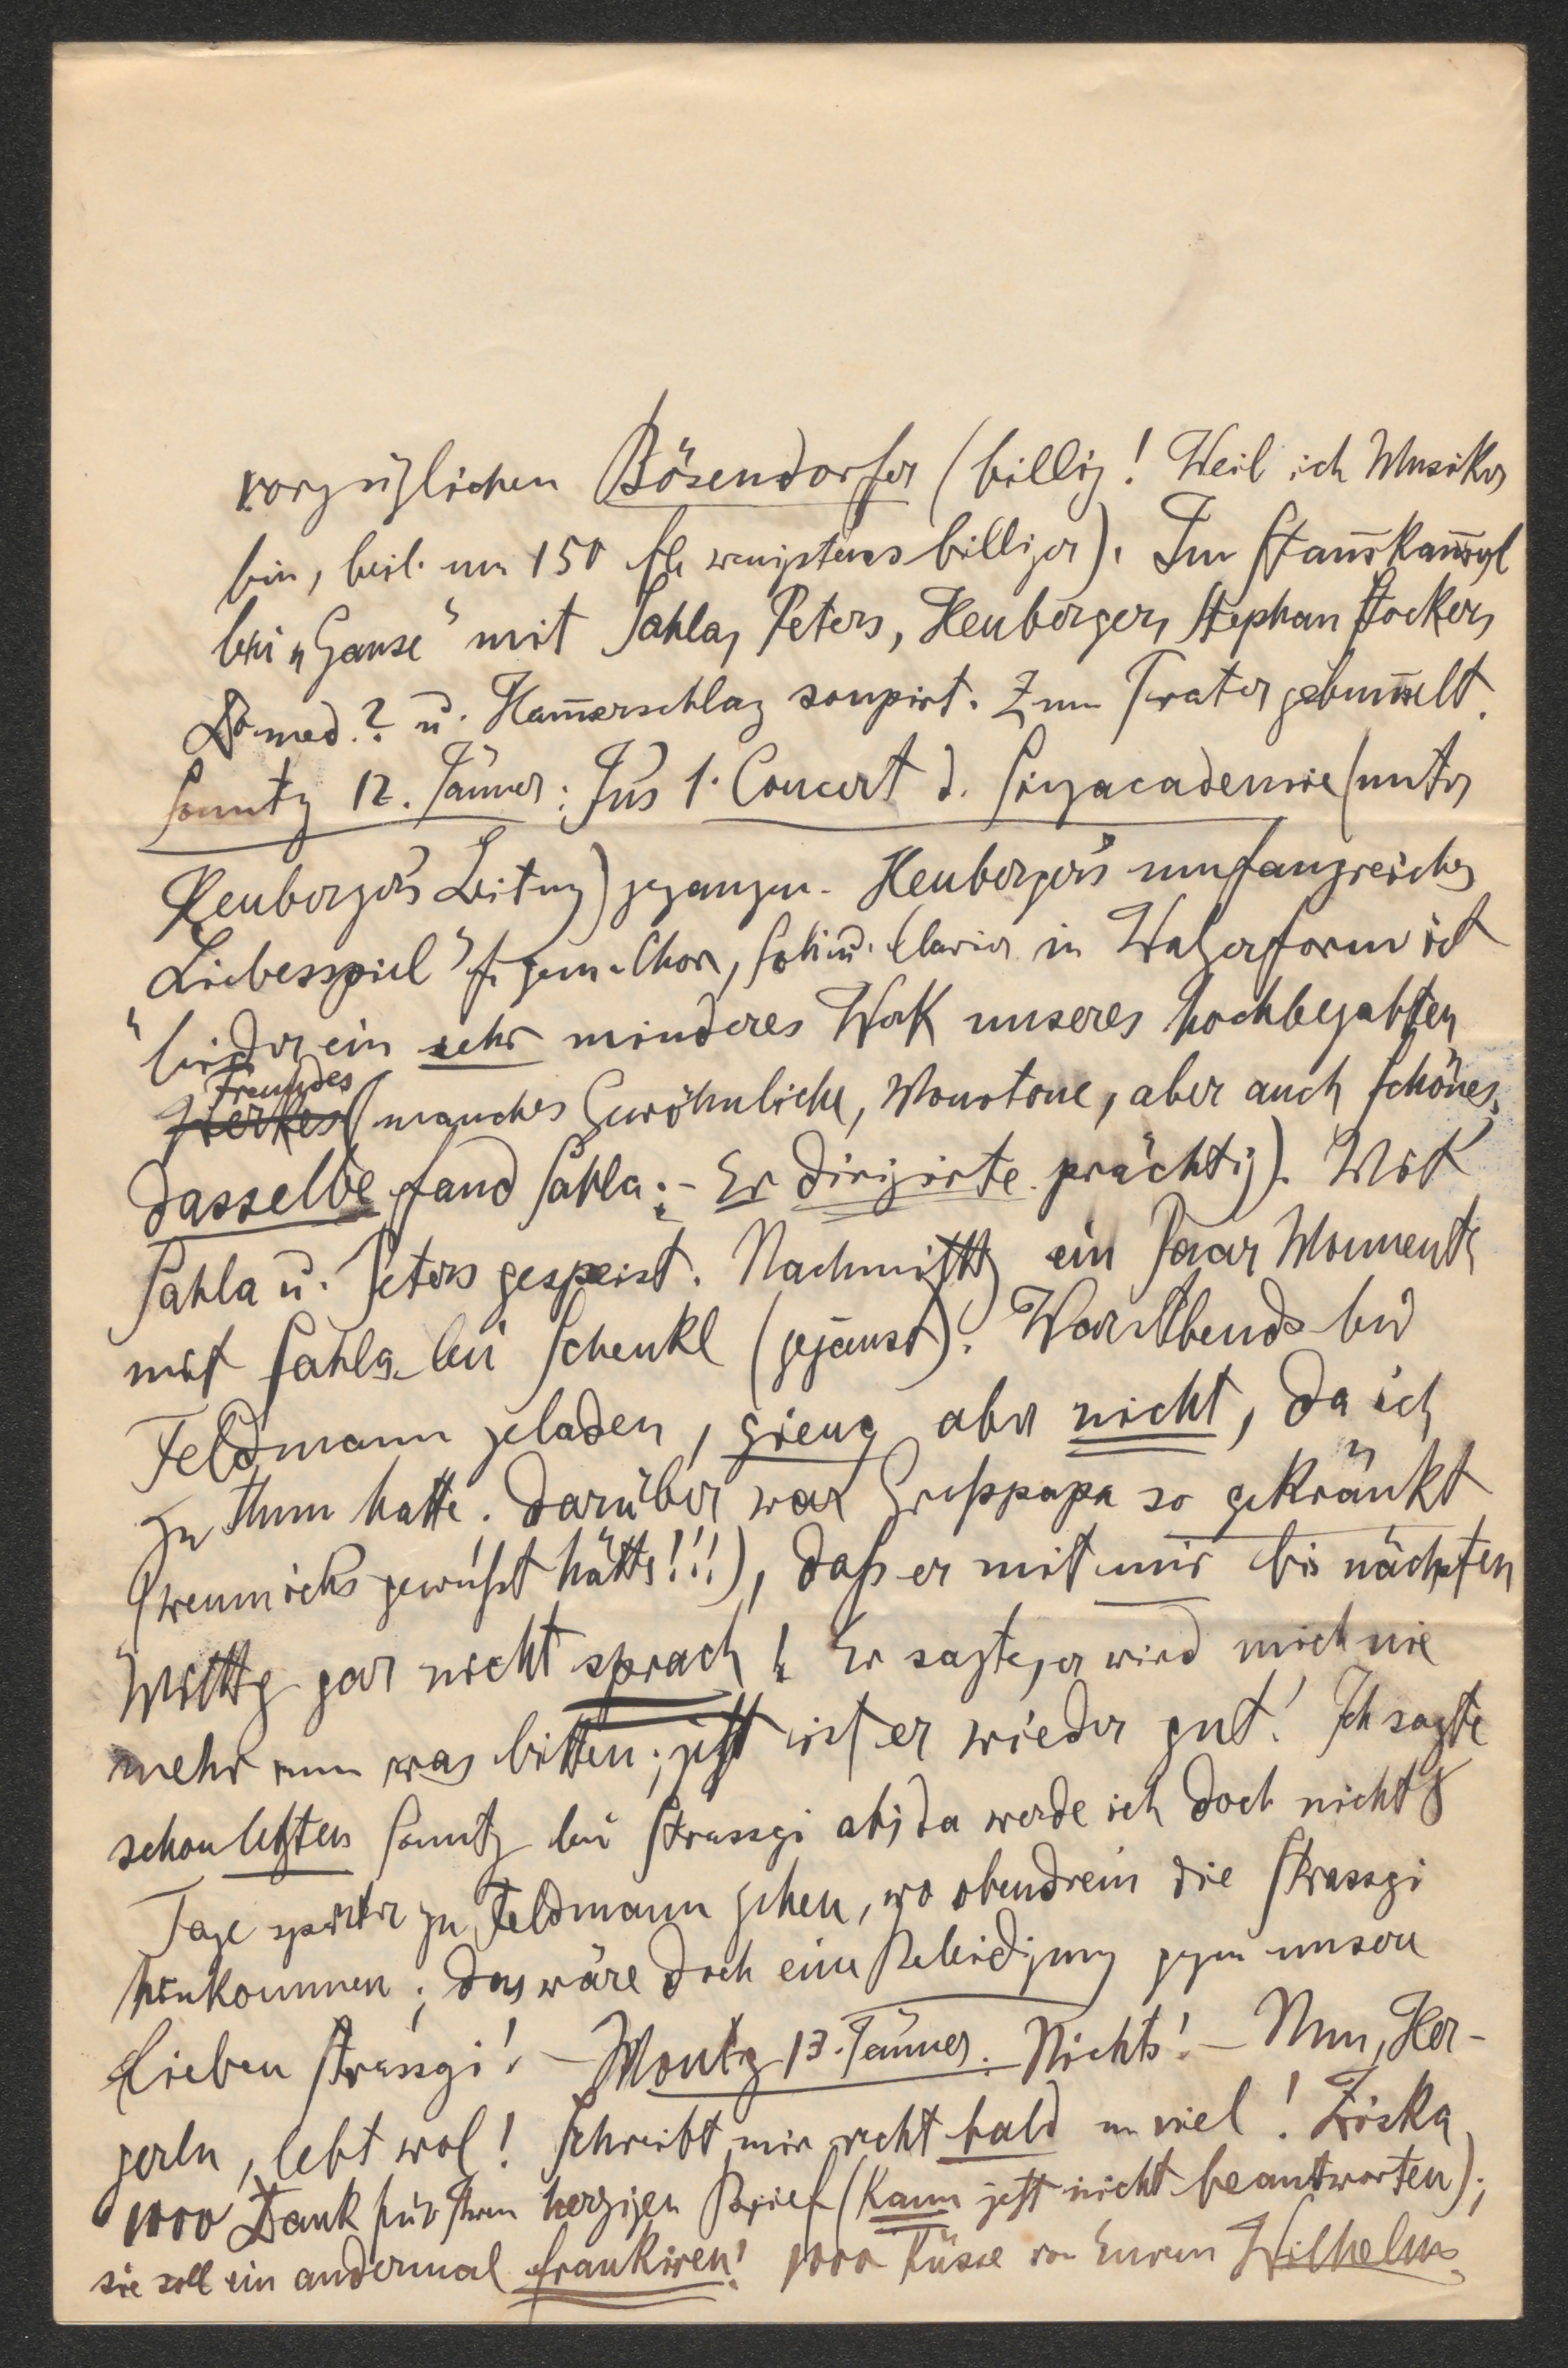 vorzüglichen Bösendorfer (billig! Weil ich Musiker
bin, beil. um 150 fl wenigstens billiger). Im Stam̅kam̅erl
bei „Gause“ mit Sahla, Peters, Heuberger, Stephan Stocker,
Dr med.? u. Ham̅erschlag soupirt. Zum Prater gebum̅elt.
Sonntg 12. Jänner: Ins 1. Concert d. Singacademie (unter
Heuberger's Leitung) gegangen. Heuberger's umfangreiches
„Liebesspiel“ f. gem. Chor, Soli u. Clavier in Walzerform ist
leider ein sehr minderes Werk unseres hochbegabten
Freundes
(manches Gewöhnliche, Monotone, aber auch Schönes;
dasselbe fand Sahla; - Er dirigirte prächtig). Mit
Sahla u. Peters gespeist. Nachmittg ein Paar Momente
mit Sahla bei Schenkl (gejaust). War Abends bei
Feldmann geladen, gieng aber nicht, da ich
zu thun hatte. Darüber war Grosspapa so gekränkt
(wenn ichs gewußt hätte!!!), daß er mit mir bis nächsten
Mittg gar nicht sprach! Er sagte, er wird mich nie
mehr um was bitten; jetzt ist er wieder gut! Ich sagte
schon letzten Sonntg bei Strassgi ab; da werde ich doch nicht 8
Tage später zu Feldmann gehen, wo obendrein die Strassgi
hinkommen; das wäre doch eine Beleidigung gegen unsere
lieben Strassgi! - Montg 13. Jänner. Nichts! - Nun, Her-
zerln, lebt wol! Schreibt mir recht bald u. viel! Ziska
1000 Dank für Ihren herzigen Brief (kann jetzt nicht beantworten);
sie soll ein andermal frankiren! 1000 Küsse von Eurem Wilhelm.